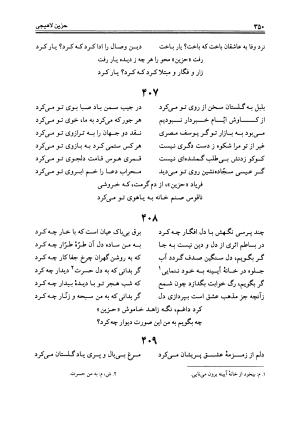 ۳۵۰
حزین لاهیجی
نرد وفا به عاشقان باخت که باخت؟ یار باخت
دین وصال را ادا کرد که کرد؟ یار کرد
رفت «حزین» محو را هر چه ز دیده یار رفت
زار و فگار و مبتلا کرد که کرد؟ یار کرد
۴۰۷
بلبل به گلستان سخن از روی تو می‌کرد
در جیب سمن باد صبا بوی تو می‌کرد
از کاوش ایّام خبردار نبودیم
هر جور که می‌کرد به ما، خوی تو می‌کرد
می‌بود به بازار تو گر یوسف مصری
نقد دو جهان را به ترازوی تو می‌کرد
غیر از تو مرا شکوه ز دست دگری نیست
هر کس ستمی کرد به بازوی تو می‌کرد
کوکو زدنش بی‌طلب گمشده‌ای نیست
قمری هوس قامت دلجوی تو می‌کرد
گر عیسی سجّاده‌نشین روی تو می‌دید
محراب دعا را خم ابروی تو می‌کرد
فریاد «حزین»، از دم گرمت، که خروشی
ناقوس صنم خانه به یاهوی تو می‌کرد
۴۰۸
چند پرسی نگهش با دل افگار چه کرد
برق بی‌باک عیان است که با خار چه کرد
در بساطم اثری از دل و دین نیست به جا
به من ساده دل آن طرّهٔ طرّار چه کرد
گر بگویم، دل سنگین صدف گردد آب
که به روشن گهران چرخ جفا کار چه کرد
جلوه در خانهٔ آیینه به خود ننمایی۱
گر بدانی که به دل حسرت۲ دیدار چه کرد
گر بگویم، رگ خوابت بگدازد چون شمع
که شب هجر تو با دیدهٔ بیدار چه کرد
زآنچه جز مذهب عشق است بپردازی دل
گر بدانی که به من سبحه و زنّار چه کرد
کرد داغم، نگه زاهد خاموش «حزین»
چه بگویم به من این صورت دیوار چه کرد؟
۴۰۹
دلم از زمزمهٔ عشق پریشان می‌کرد
مرغ بی‌بال و پری یاد گلستان می‌کرد
۱. م: بیخود از خانهٔ آیینه برون می‌تابی.
۲. ش، م: به من حسرت.